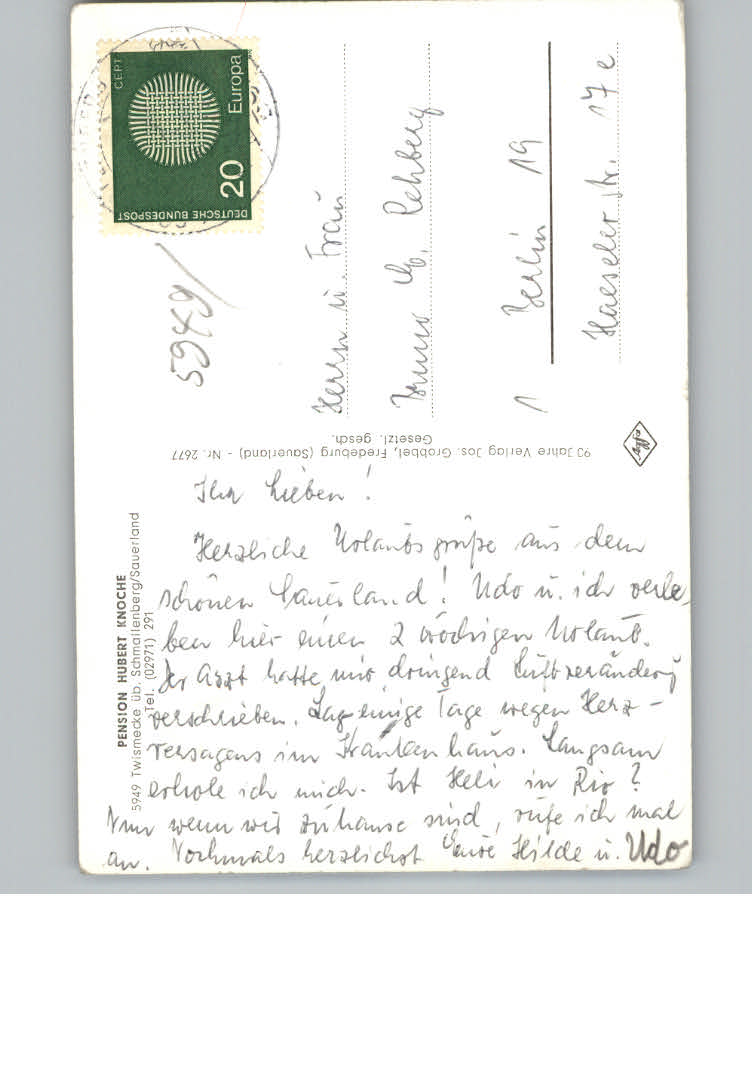 Ihr Lieben!
Herzliche Urlaubsgrüße aus dem
schönen Sauerland! Udo u. ich verle-
ben hier einen 2 wöchigen Urlaub.
Der Arzt hatte mir dringend Luftveränderg
verschrieben. Lag einige Tage wegen Herz-
versagens im Krankenhaus. Langsam
erhole ich mich. Ist Heli in Rio?
Nun wenn wir zuhause sind, rufe ich mal
an. Nochmals herzlichst Eure Hilde u. Udo
PENSION HUBERT KNOCHE
5949 Twismecke üb. Schmallenberg/Sauerland
Tel. (02971) 291
90 Jahre Verlag Jos. Grobbel, Fredeburg (Sauerland) - Nr. 2677
Gesetzl. gesch.
DEUTSCHE BUNDESPOST
20
Europa
CEPT
5949
Herrn u. Frau
Bruno Rehberg
1 Berlin 19
Haeseler str. 17 e